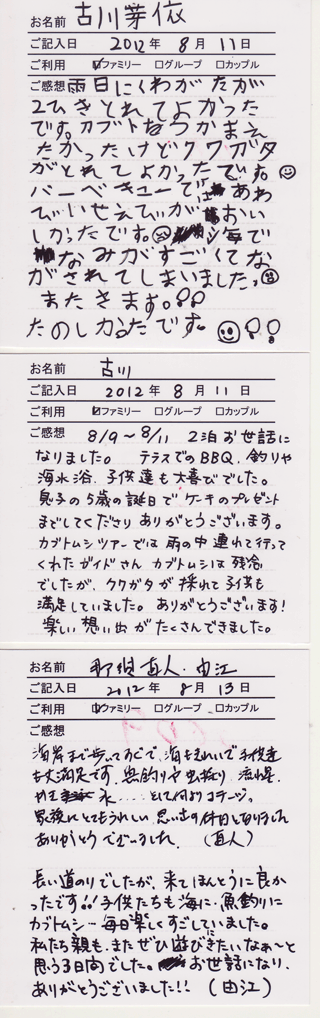 お名前 古川芽依
ご記入日 2012年 8月 11日
ご利用 ☑ファミリー □グループ □カップル
ご感想 雨日にくわがたが
2ひきとれてよかった
です。カブトもつかまえ
たかったけどクワガタ
がとれてよかったです。
バーベキューで あわ
びいせえびが おい
しかったです。 海で
なみがすごくてな
がされてしまいました。
またきます。
たのしかったです。
お名前 古川
ご記入日 2012年 8月 11日
ご利用 ☑ファミリー □グループ □カップル
ご感想 8/9~8/11 2泊お世話に
なりました。 テラスでのBBQ、釣りや
海水浴、子供達も大喜びでした。
息子の5歳の誕日でケーキのプレゼント
までしてくださりありがとうございます。
カブトムシツアーでは雨の中連れて行って
くれたガイドさん カブトムシは残念
でしたが、クワガタが採れて子供も
満足していました。ありがとうございます!
楽しい想い出がたくさんできました。
お名前 直人・由江
ご記入日 2012年 8月 13日
ご利用 ☑ファミリー □グループ □カップル
ご感想
海岸まで歩いてすぐで、海もきれいで子供達
も大満足です。魚釣りや虫採り、流れ星、
とにて何よりコテージ。
家族にとってもうれしい思い出の休日となりました
ありがとうございました。 (直人)
長い道のりでしたが、来てほんとうに良か
ったです!!子供たちも海に、魚釣りに
カブトムシ…毎日楽しくすごしていました。
私たち親も、またぜひ遊びにきたいなぁ~と
思う3日間でした。 お世話になり、
ありがとうございました!! (由江)